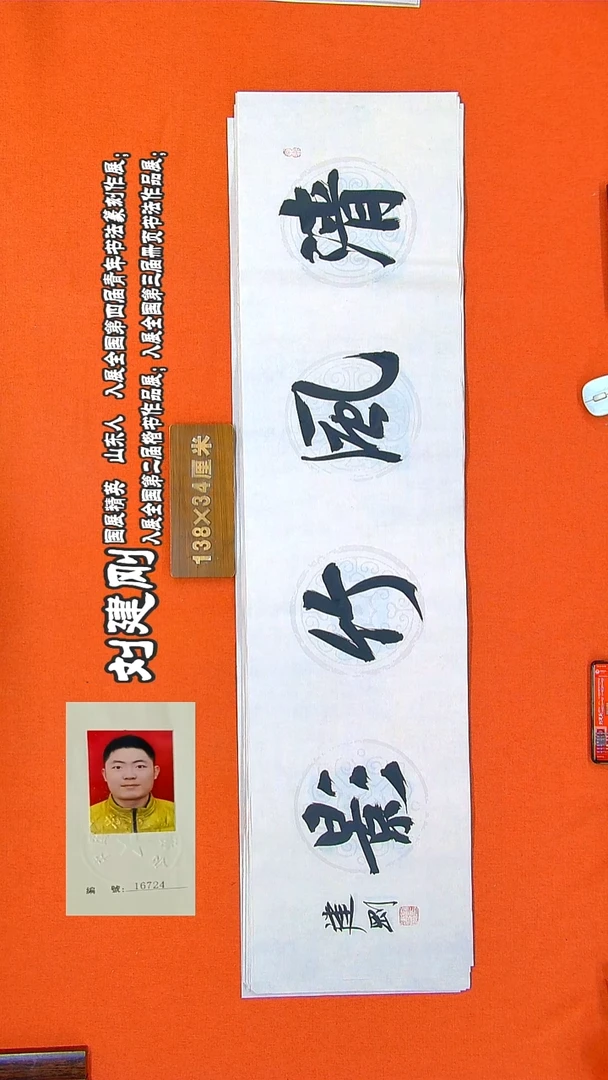 刘建刚
国展精英 山东人 入展全国第四届青年书法篆刻作展;
入展全国第二届楷书作品展; 入展全国第三届册页书法作品展;
138×34厘米
清風竹影
建剛
編 號: 16724